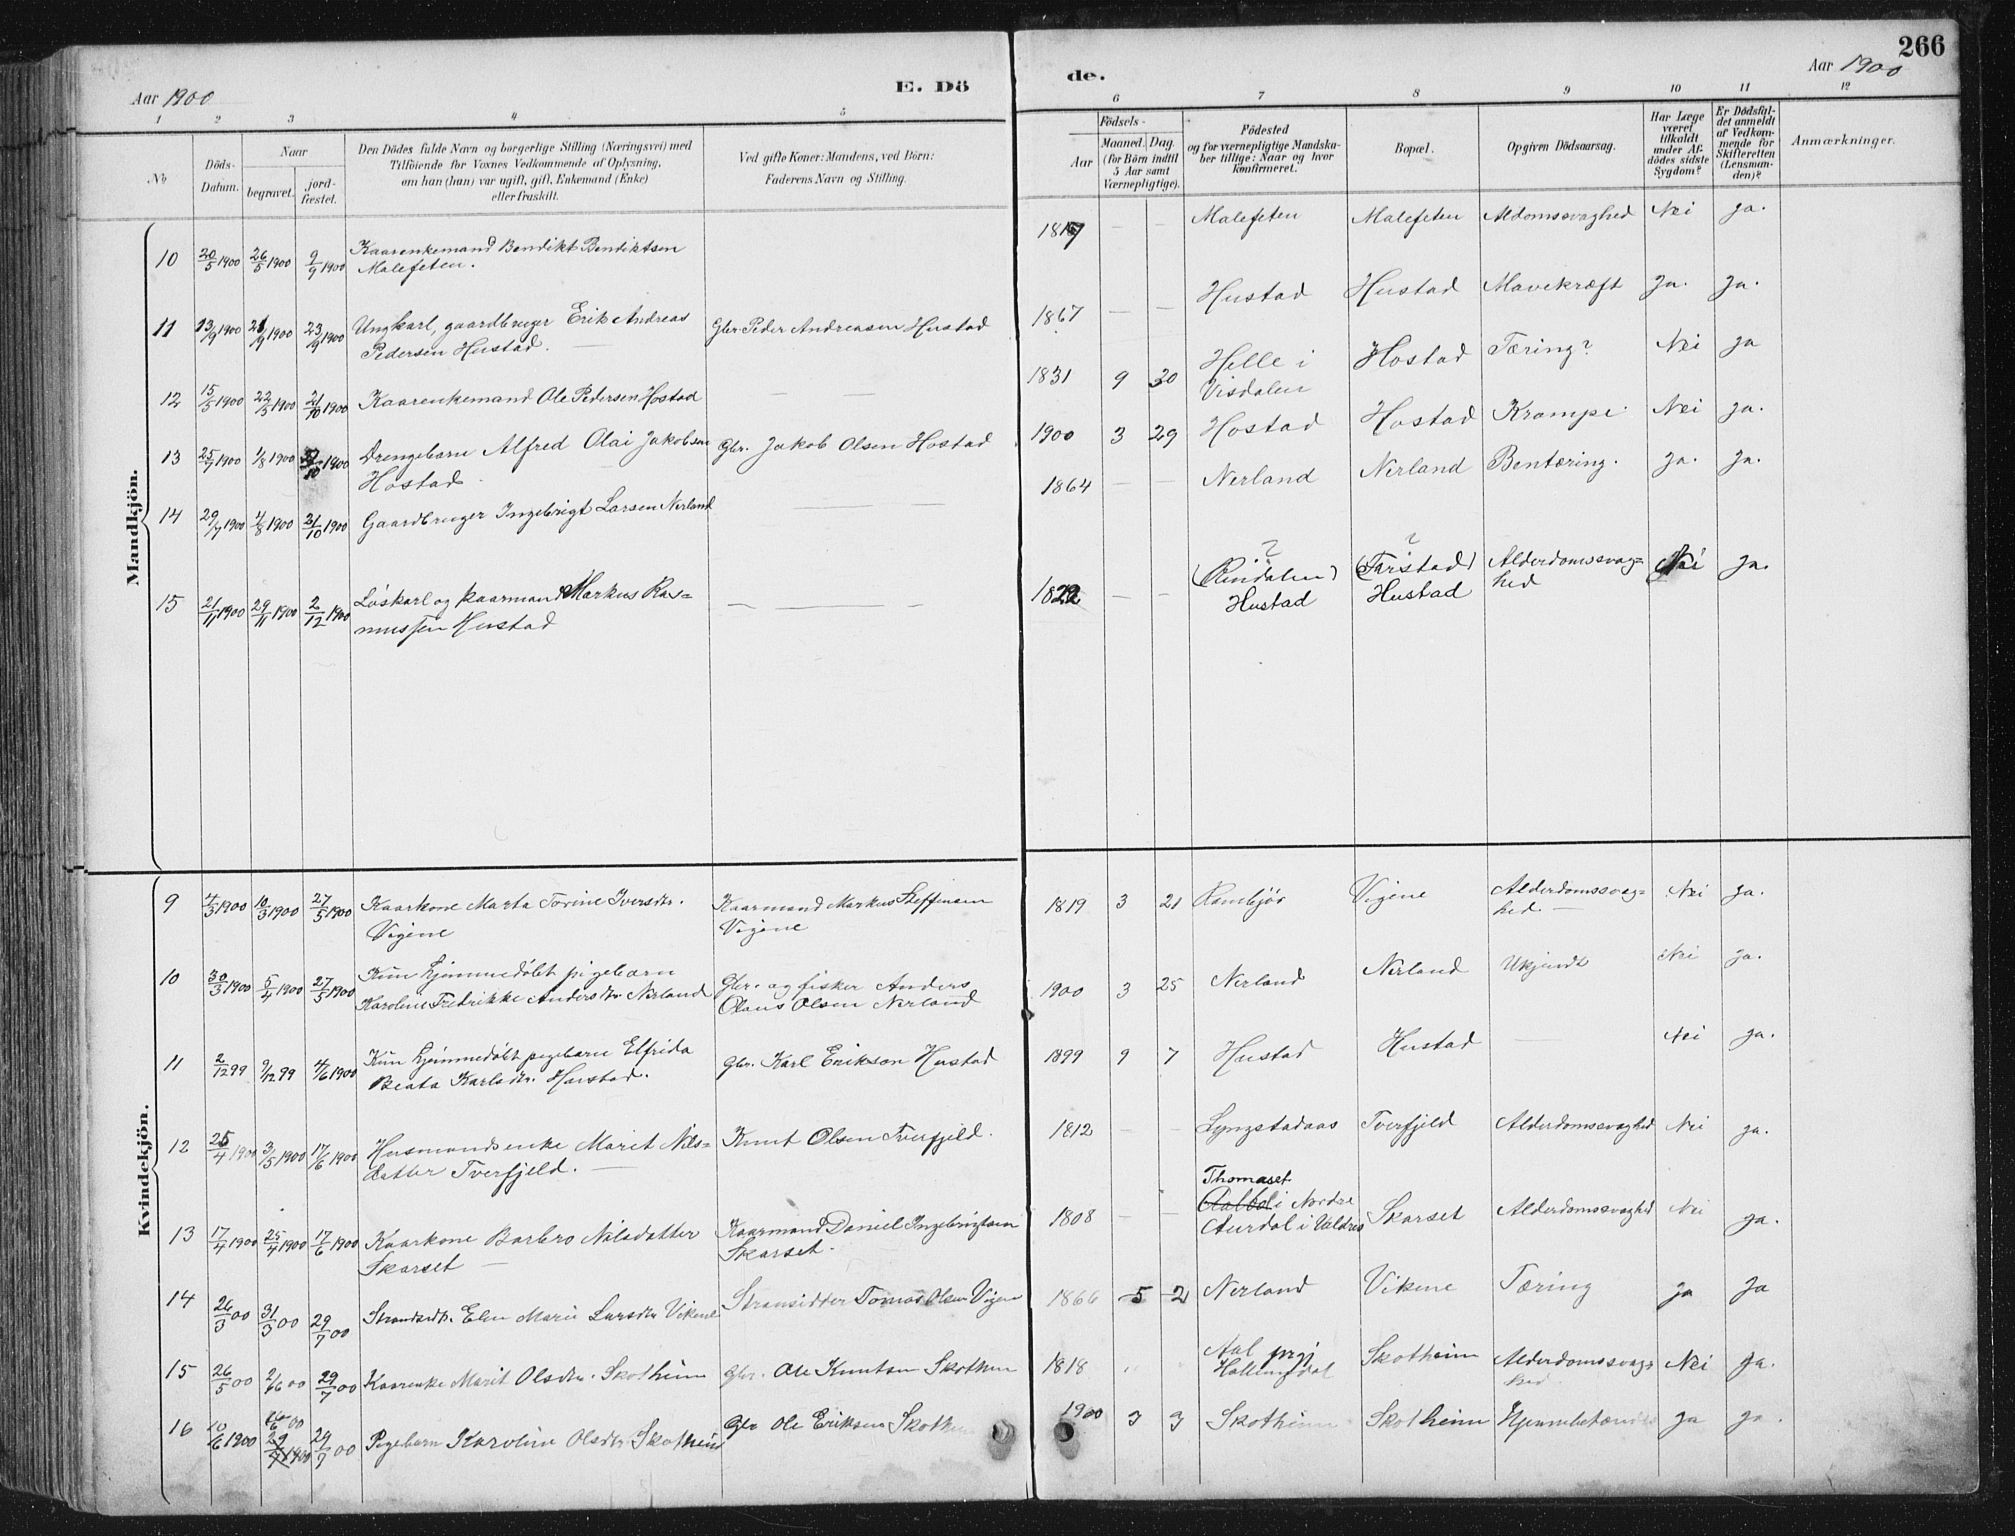 266
Aar 1900
E. Dö
de.
Aar 1900
1 2 3 4 5
6 7 8 9 10 11 12
No
Döds-
Datum.
Naar
begravet.
jord-
fæstet.
Den Dödes fulde Navn og borgerlige Stilling (Næringsvei) med
Tilföiende for Voxnes Vedkommende af Oplysning,
om han (hun) var ugift, gift, Enkemand (Enke)
eller fraskilt.
Ved gifte Koner: Mandens, ved Börn:
Faderens Navn og Stilling.
Födsels-
Aar
Maaned. Dag.
(for Börn indtil
5 Aar samt
Værnepligtige).
Födested
og for værnepligtige Mandska-
ber tillige: Naar og hvor
konfirmeret.
Bopæl.
Opgiven Dödsaarsag.
Har Læge
været
tilkaldt
under Af-
dödes sidste
Sygdom?
Er Dödsfal-
det anmeldt
af Vedkom-
mende for
Skifteretten
(Lensman-
den)?
Anmærkninger.
Mandkjön.
10 20/5 1900 26/5 1900 9/9 1900 Kaarenkemand Bendikt Bendiktsen
Malefeten.
1817 — — Malefeten Malefeten Aldomssvaghed Nei ja.
11 13/9 1900 21/9 1900 23/9 1900 Ungkarl, gaardbruger Erik Andreas
Pedersen Hustad. Gbr. Peder Andreasen Hustad
1867 — — Hustad Hustad Mavekræft ja. ja.
12 15/5 1900 22/5 1900 21/10 1900 Kaarenkemand Ole Pedersen Hostad — —
1831 9 30 Helle i
Visdalen Hostad Tæring? Nei ja
13 25/7 1900 1/8 1900 1900 Drengebarn Alfred Olai Jakobsen
Hostad Gbr. Jakob Olsen Hostad
1900 3 29 Hostad Hostad Krampe. Nei ja.
14 29/7 1900 4/8 1900 21/10 1900 Gaardbruger Ingebrigt Larsen Nerland — —
1864 — — Nerland Nerland Bentæring. ja. ja.
15 21/11 1900 29/11 1900 2/12 1900 Löskarl og kaarmand Markus Ras=
mussen Hustad — — —
1822 — — ?
(Rindalen)
Hustad ?
(Tarstad)
Hustad Alderdomssvag=
hed Nei ja.
Kvindekjön.
9 4/3 1900 10/3 1900 27/5 1900 Kaarkone Marta Torine Iversdtr.
Vigene Kaarmand Markus Steffensen
Vigene
1819 3 21 Rambjör Vigene Alderdomssvag=
hed — Nei ja.
10 30/3 1900 5/4 1900 27/5 1900 Kun hjemmedöbt pigebarn
Karoline Fredrikke Andersdtr. Nerland Gbr. og fisker Anders
Olaus Olsen Nerland
1900 3 25 Nerland Nerland Ukjendt Nei ja.
11 2/12 99 9/12 99 4/6 1900 Kun hjemmedöbt pigebarn Elfrida
Beata Karlsdtr. Hustad. Gbr. Karl Erikson Hustad
1899 9 7 Hustad Hustad — Nei ja.
12 25/4 1900 3/5 1900 17/6 1900 Husmandsenke Marit Nils=
datter Tverfjeld. — Knut Olsen Tverfjeld.
1812 — — Lyngstadaas Tverfjeld Alderdomssvaghed Nei ja.
13 17/4 1900 25/4 1900 17/6 1900 Kaarkone Barbro Nilsdatter
Skarset — Kaarmand Daniel Ingebrigtsen
Skarset.
1808 — — Thomaset
i Nordre
Aurdal i Valdres Skarset Alderdomssvaghed Nei ja.
14 26/3 00 31/3 00 29/7 00 Strandsdtr. Elen Marie Larsdtr Vikene Stransidder Tomas Olsen Vigene
1866 5 2 Nerland Vikene Tæring ja ja
15 26/5 00 2/6 00 29/7 00 Kaarenke Marit Olsdtr. Skotheim Gbr. Ole Knutsen Skotheim
1818 Aal prgj
Hallingdal Skotheim Alderdomssvag=
hed Nei ja.
16 10/6 1900 16/6 00
1900 29/7 00 Pigebarn Karoline Olsdtr. Skotheim Gbr Ole Eriksen Skotheim
1900 3 3 Skotheim Skotheim Hjernebetændelse ja ja.